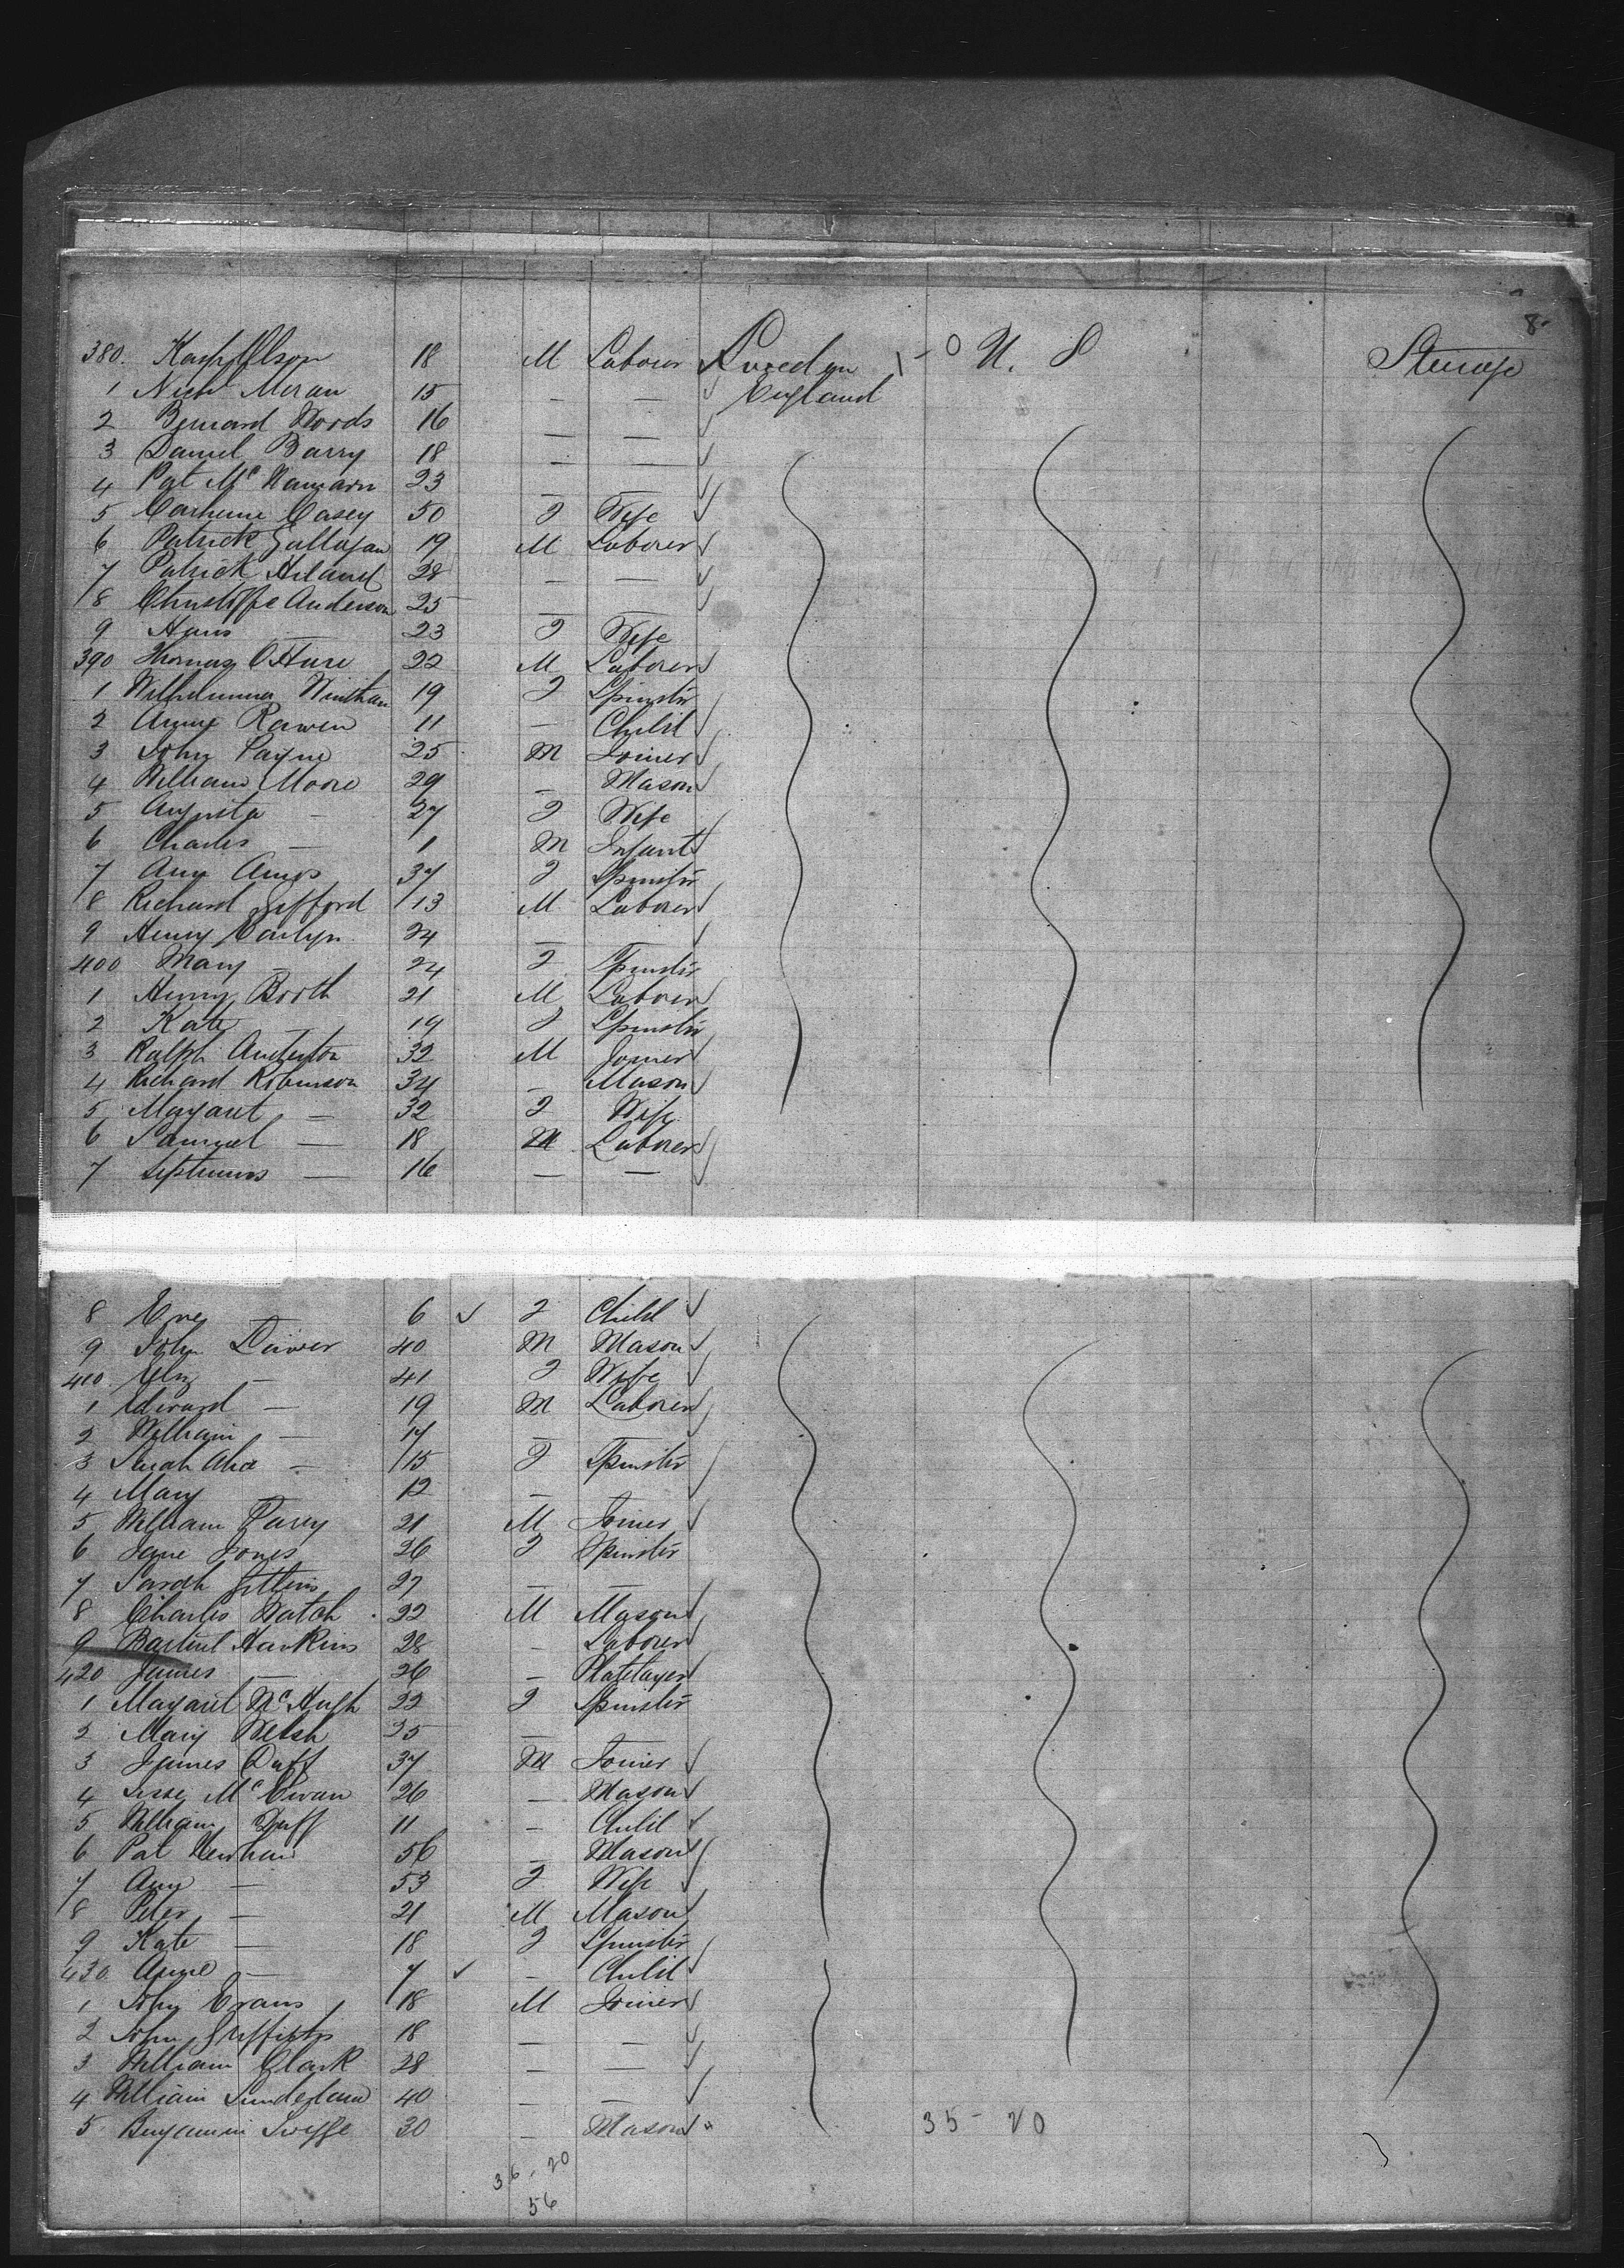 8
380. Olson 18 M Laborer Sweden 1-0 U. S Steerage
1 Moran 15 — — England
2 Bernard Woods 16 — —
3 Daniel Barry 18 — —
4 Pat McNamara 23 — —
5 Catherine Casey 50 F Wife
6 Patrick Gallagan 19 M Laborer
7 Patrick Hiland 28 — —
8 Anderson 25 — —
9 Hans — 23 F Wife
390 Thomas O'Hare 22 M Laborer
1 Wilhelmina 19 F Spinstr
2 Rawen 11 — Child
3 John Payne 25 M Joiner
4 William Moore 29 — Mason
5 Augusta — 27 F Wife
6 Charles — 1 M Infant
7 Ann Amos 37 F Spinstr
8 Richard Gifford 13 M Laborer
9 Henry 24 — —
400 Mary — 24 F Spinstr
1 Henry Booth 21 M Laborer
2 Kate — 19 F Spinstr
3 Ralph Anderton 32 M Joiner
4 Richard Robinson 34 — Mason
5 Margaret — 32 F Wife
6 Samuel — 18 M Laborer
7 Septimus — 16 — —
8 Eve — 6 F Child
9 John 40 M Mason
410. Eliz — 41 F Wife
1 Edward — 19 M Laborer
2 William — 17 — —
3 Sarah — 15 F Spinstr
4 Mary — 12 — —
5 William Parry 21 M Joiner
6 Jane Jones 26 F Spinstr
7 Sarah Gittins 27 — —
8 Charles Watch 22 M Mason
9 Hawkins 28 — Laborer
420 James — 26 — Platelayer
1 Margaret McHugh 22 F Spinstr
2 Mary Welsh 25 — —
3 James Duff 37 M Joiner
4 McEwan 26 — Mason
5 William Duff 11 — Child
6 Pat 56 — Mason
7 Ann — 53 F Wife
8 Peter — 21 M Mason
9 Kate — 18 F Spinstr
430. Anne — 7 — Child
1 John Evans 18 M Joiner
2 John Griffiths 18 — —
3 William Clark 28 — —
4 William Sunderland 40 — —
5 Benjamin 30 — Mason 35-20
36-20
56